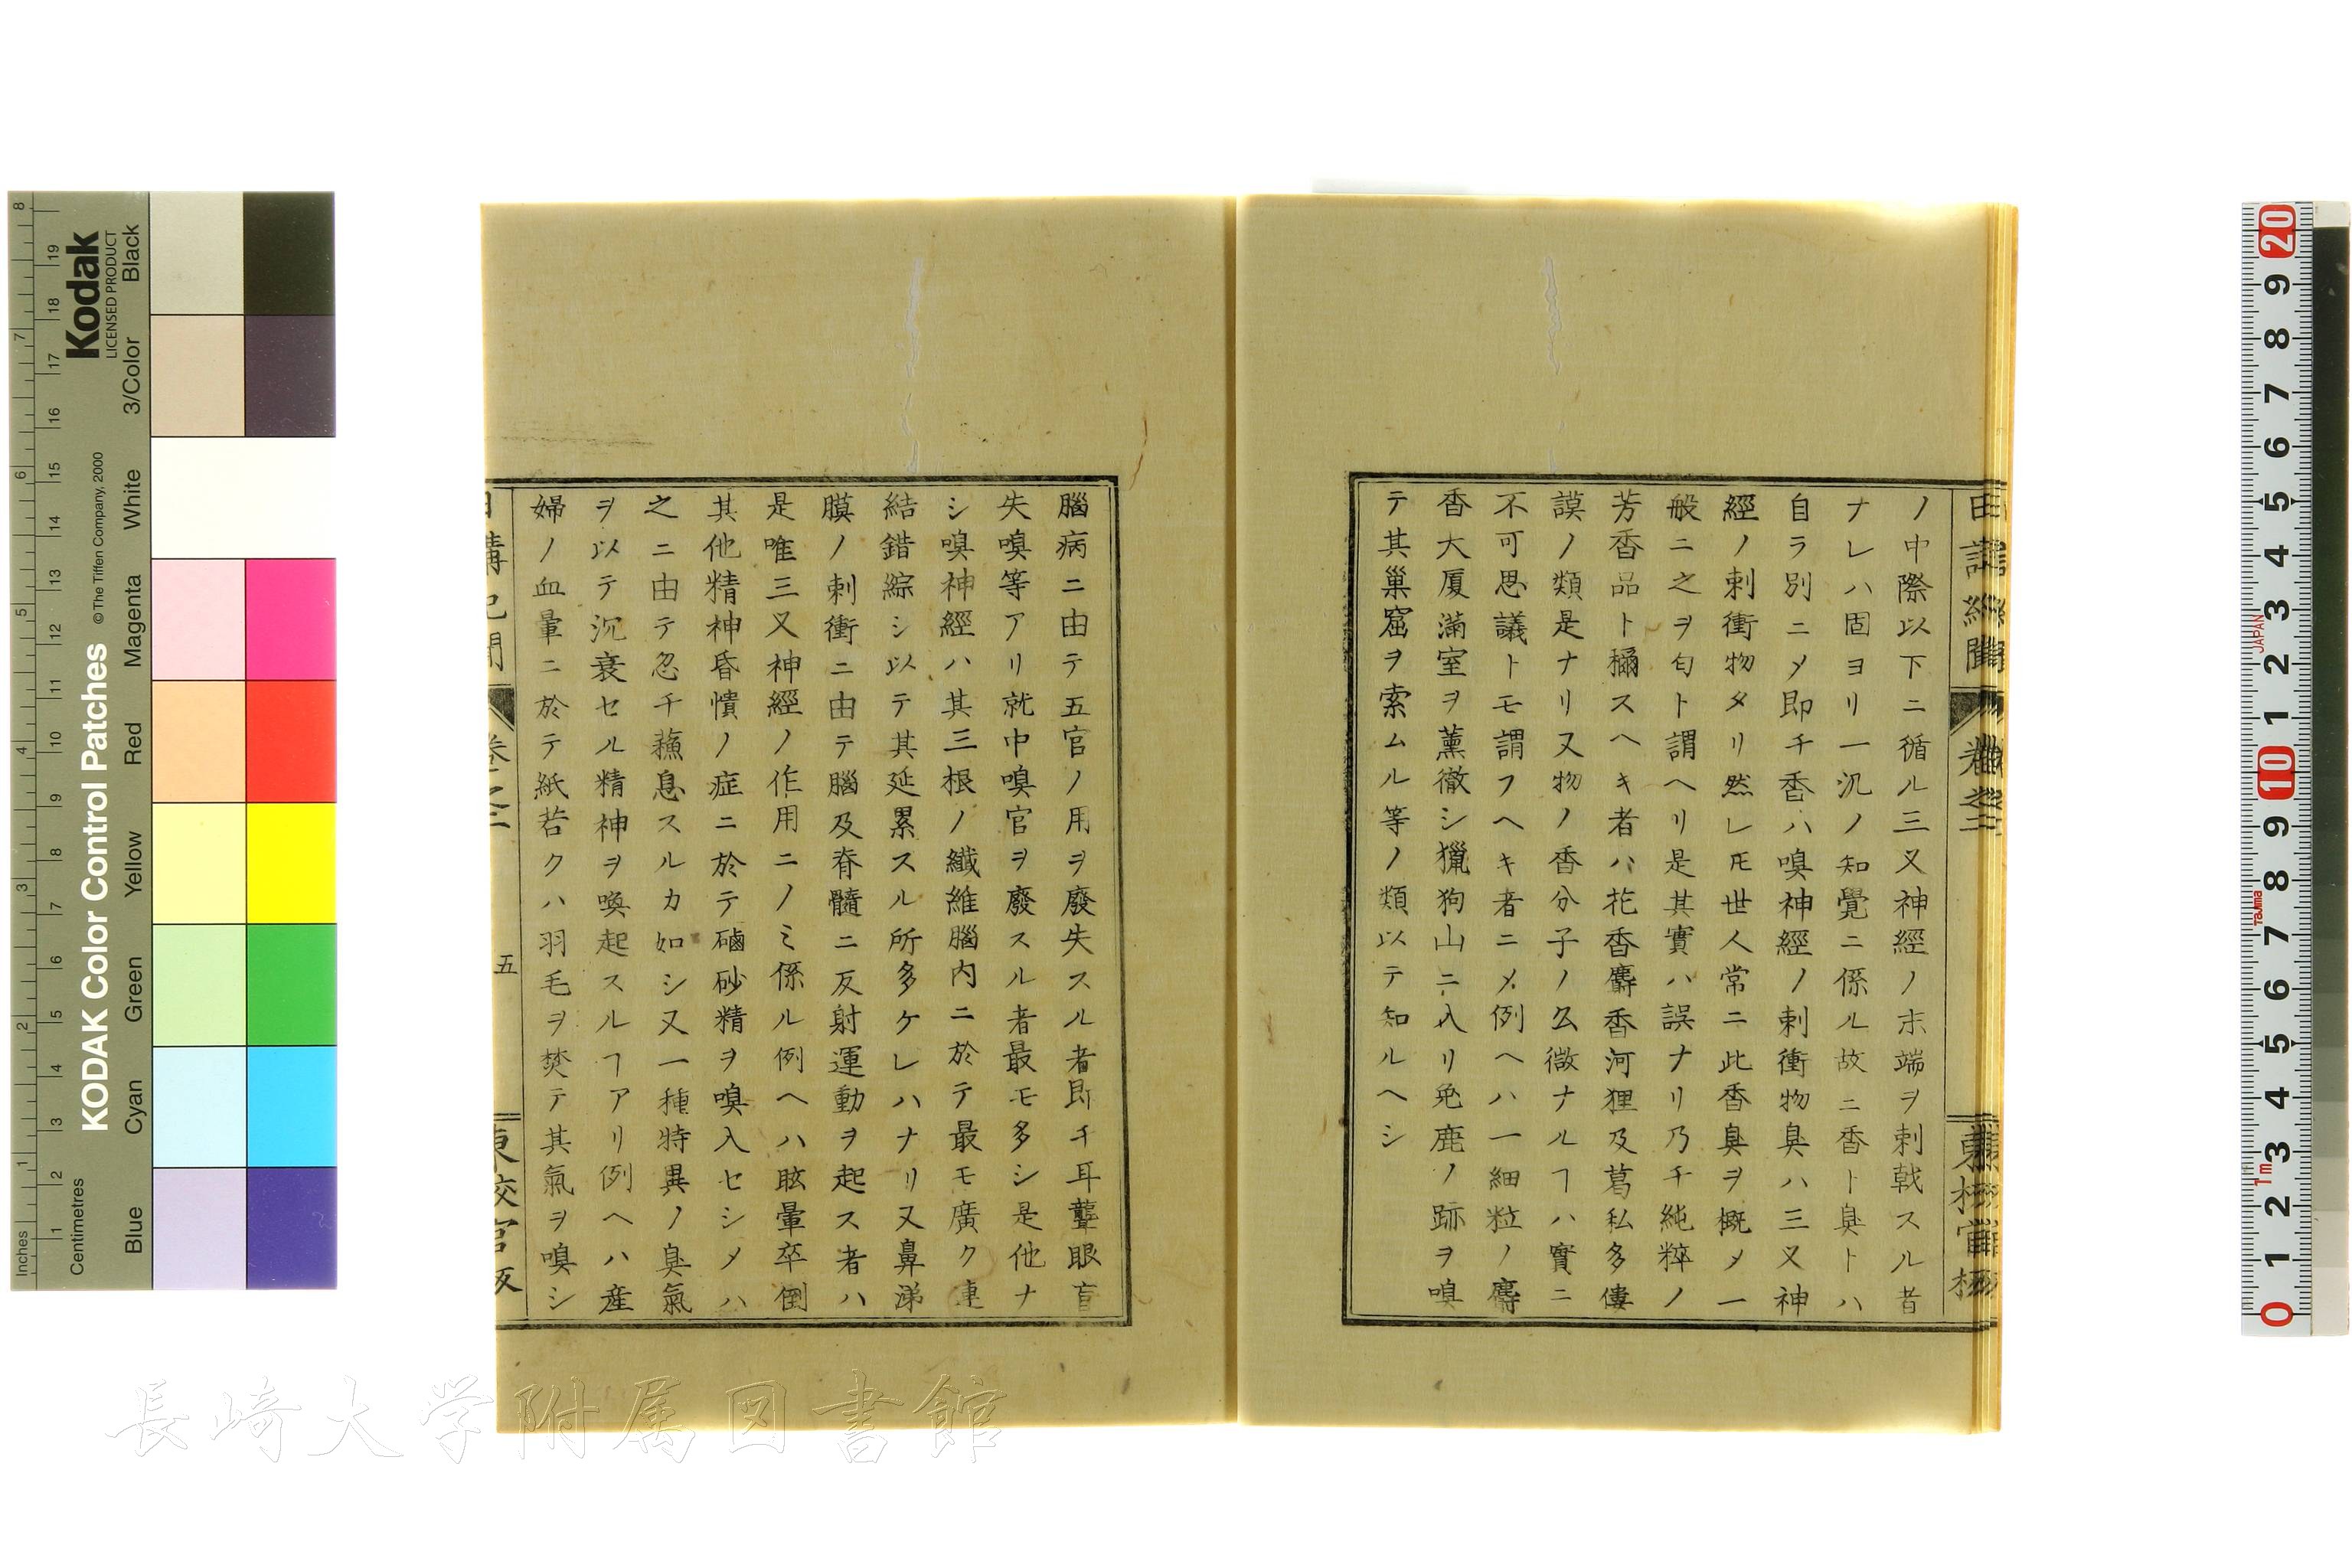 ノ中際以下ニ循ル三叉神經ノ末端ヲ刺戟スル者
ナレハ固ヨリ一汎ノ知覺ニ係ル故ニ香ト臭トハ
自ラ別ニメ即チ香ハ嗅神經ノ刺衝物臭ハ三叉神
經ノ刺衝物タリ然レ𪜈世人常ニ此香臭ヲ概メ一
般ニ之ヲ匂ト謂ヘリ是其實ハ誤ナリ乃チ純粹ノ
芳香品ト稱スヘキ者ハ花香麝香河狸及葛私多僂
謨ノ類是ナリ又物ノ香分子ノ幺微ナルヿハ實ニ
不可思議トモ謂フヘキ者ニメ例ヘハ一細粒ノ麝
香大厦滿室ヲ薰徹シ獵狗山ニ入リ兔鹿ノ跡ヲ嗅
テ其巢窟ヲ索ムル等ノ類以テ知ルヘシ
腦病ニ由テ五官ノ用ヲ廢失スル者即チ耳聾眼盲
失嗅等アリ就中嗅官ヲ廢スル者最モ多シ是他ナ
シ嗅神經ハ其三根ノ纖維腦内ニ於テ最モ廣ク連
結錯綜シ以テ其延累スル所多ケレハナリ又鼻涕
膜ノ刺衝ニ由テ腦及脊髓ニ反射運動ヲ起ス者ハ
是唯三叉神經ノ作用ニノミ係ル例ヘハ眩暈卒倒
其他精神昏憒ノ症ニ於テ磠砂精ヲ嗅入セシメハ
之ニ由テ忽チ蘓息スルカ如シ又一種特異ノ臭氣
ヲ以テ沉衰セル精神ヲ喚起スルヿアリ例ヘハ産
婦ノ血暈ニ於テ紙若クハ羽毛ヲ焚テ其氣ヲ嗅シ
日講記聞
卷之三
五
東校官版
KODAK Color Control Patches
© The Tiffen Company, 2000
Kodak
LICENSED PRODUCT
Inches
Centimetres
Blue
Cyan
Green
Yellow
Red
Magenta
White
3/Color
Black
JAPAN
Tajima
1m
長崎大学附属図書館